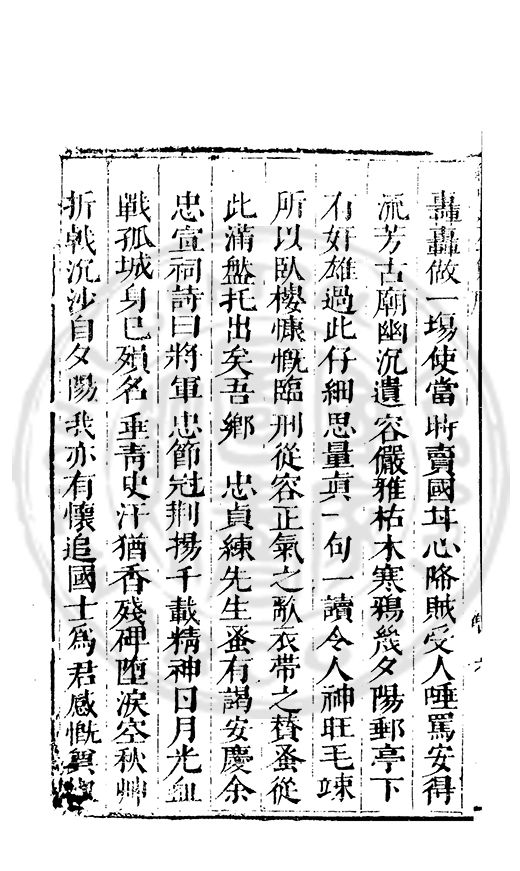 轟轟做一場使當時賣國甘心賂賊受人唾罵安得
流芳古廟幽沉遺容儼雅枯木寒鴉幾夕陽郵亭下
有奸雄過此仔細思量真一句一讀令人神旺毛竦
所以臥樓慷慨臨刑從容正氣之歌衣帶之賛蚤從
此滿盤托出矣吾鄉 忠貞練先生蚤有謁安慶余
忠宣祠詩曰將軍忠節冠荆揚千載精神日月光血
戰孤城身已殞名垂靑史汗猶香殘碑墮淚空秋艸
折戟沉沙自夕陽我亦有懷追國士爲君感慨奠